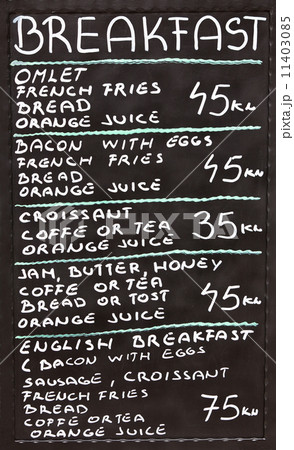 BREAKFAST
OMLET
FRENCH FRIES
BREAD
ORANGE JUICE
45 KN
BACON WITH EGGS
FRENCH FRIES
BREAD
ORANGE JUICE
45 KN
CROISSANT
COFFE OR TEA
ORANGE JUICE
35 KN
JAM, BUTTER, HONEY
COFFE OR TEA
BREAD OR TOST
ORANGE JUICE
45 KN
ENGLISH BREAKFAST
( BACON WITH EGGS
SAUSAGE, CROISSANT
FRENCH FRIES
BREAD
COFFE OR TEA
ORANGE JUICE
75 KN
PIXTA
11403085